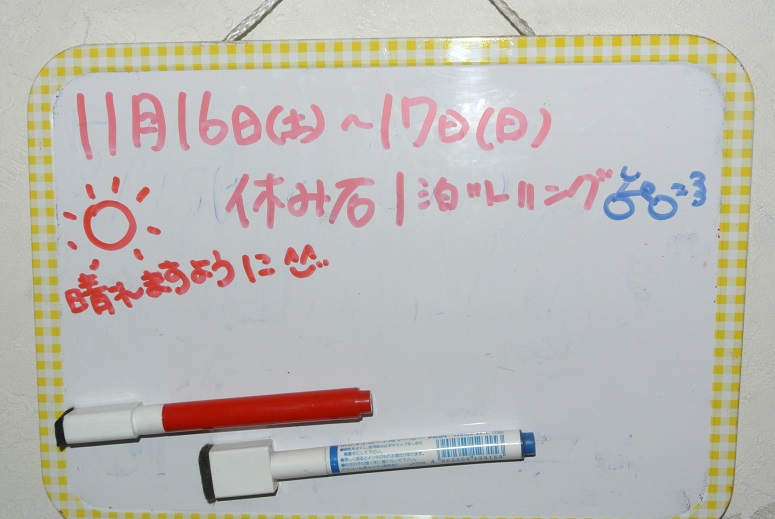 11月16日(土)~17日(日)
休み石1泊ツーリング
晴れますように